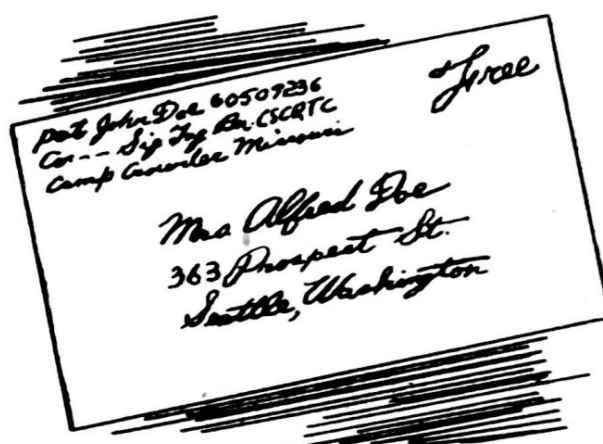 Pvt John Doe 60509236
Co -- Sig Tng Bn. CSCRTC
Camp Crowder Missouri
Free
Mrs Alfred Doe
363 Prospect St.
Seattle, Washington